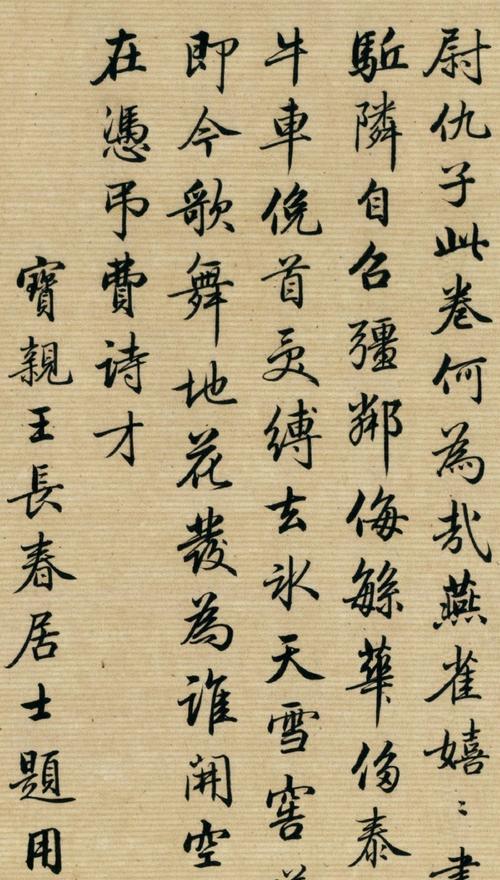 尉仇子此卷何為哉燕雀嬉〻
駈隣自召彊鄰侮繇華侈泰
牛車俛首受縛去氷天雪窖
即今歌舞地花發為誰開空
在憑弔費詩才
寶親王長春居士題用